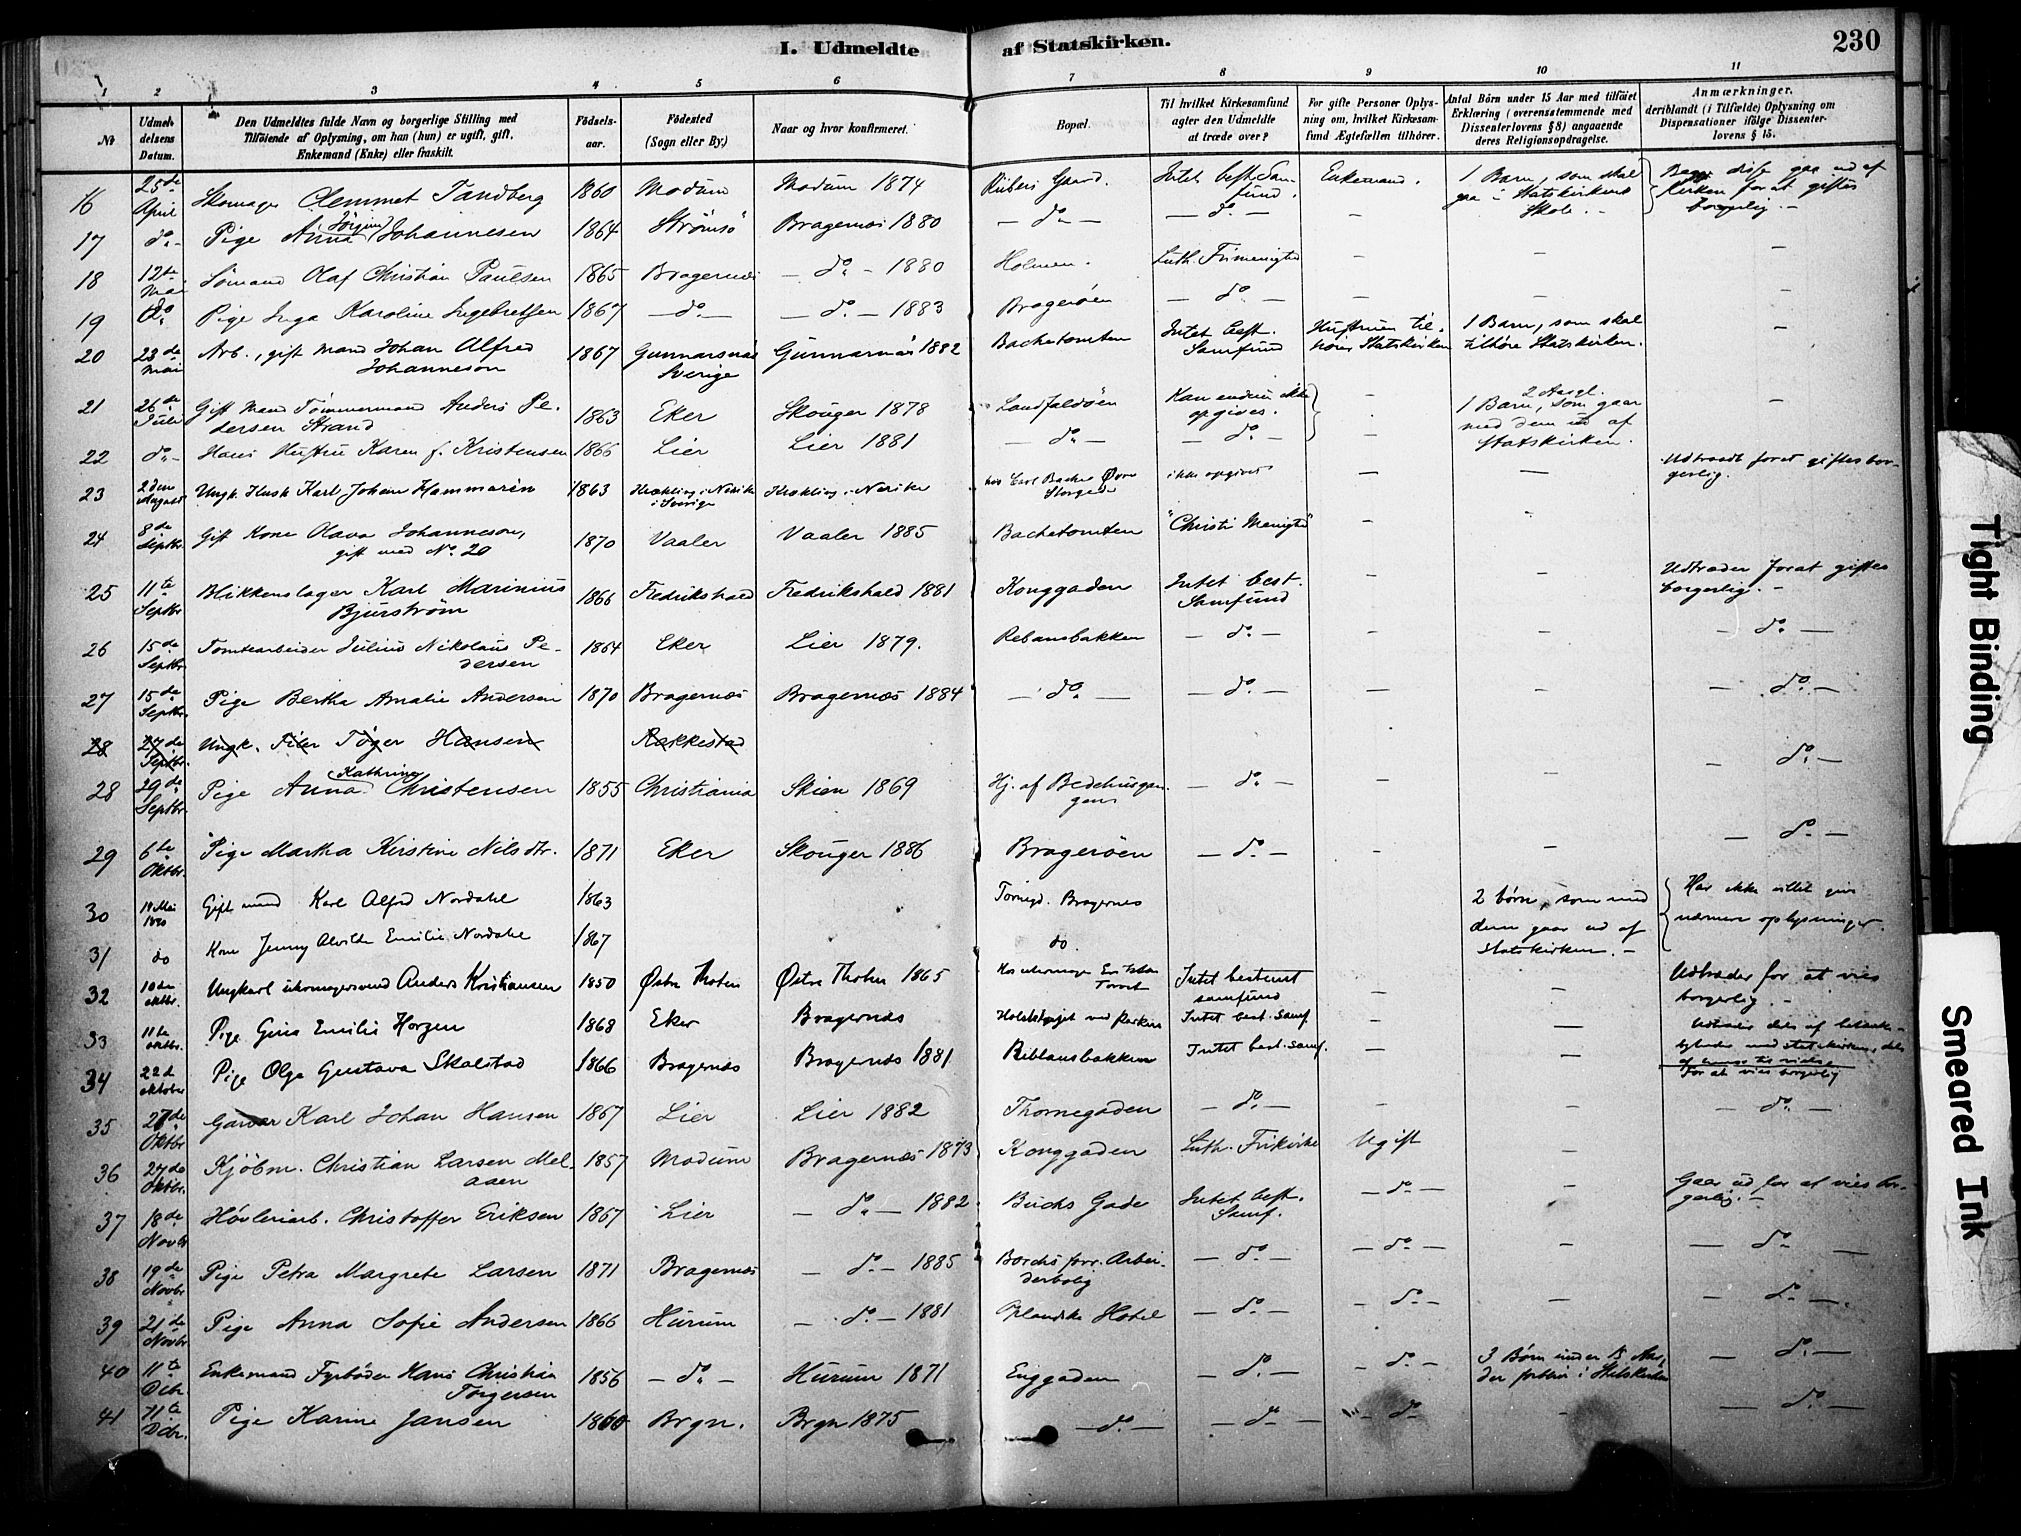 I. Udmeldte af Statskirken.
230
1 2 3 4 5 6 7 8 9 10 11
No
Udmeldelsens Datum.
Den Udmeldtes fulde Navn og borgerlige Stilling med
Tilföiende af Oplysning, om han (hun) er ugift, gift,
Enkemand (Enke) eller fraskilt.
Födselsaar.
Födested
(Sogn eller By.)
Naar og hvor konfirmeret.
Bopæl.
Til hvilket Kirkesamfund
agter den Udmeldte
at træde over?
For gifte Personer Oplys-
ning om, hvilket Kirkesam-
fund Ægtefællen tilhörer.
Antal Börn under 15 Aar med tilföiet
Erklæring (overensstemmende med
Dissenterlovens § 8) angaaende
deres Religionsopdragelse.
Anmærkninger,
deriblandt (i Tilfælde) Oplysning om
Dispensationer ifölge Dissenter-
lovens § 15.
16 25de April Skomager Clemmet Tandberg 1860 Modum Modum 1874 Gaard. Intet best. Samfund. Enkemand. 1 Barn, som skal gaa i Statskirkens Skole. - disse gaa ud af Kirken for at giftes borgerlig. -
17 do - Pige Anna Jörgine Johannesen 1864 Strömsö Bragernæs 1880 - do - - do - -
18 12te Mai Sömand Olaf Christian Paulsen 1865 Bragernæs - do - 1880 Holmen. Luth. Frimenighed - - -
19 do Pige Inga Karoline Ingebretsen 1867 - do - - do - 1883 Bragerøen - do - - - -
20 23de Mai Arb., gift Mand Johan Alfred Johanneson 1867 Gunnarsnäs Sverige Gunnarsnäs 1882 Bachetomten Intet best. Samfund Hustruen tilhörer Statskirken 1 Barn, som skal tilhöre Statskirken. -
21 26de Juli Gift Mand Tömmermand Anders Pedersen Strand 1863 Eker Skouger 1878 Landfaldöen Kan endnu ikke opgives. - 2 Aargl. 1 Barn, som gaar med dem ud af Statskirken. -
22 do - Hans Hustru Karen f. Kristensen 1866 Lier Lier 1881 - do - - do - -
23 2den August Ungk. Karl Johan Hammarén 1863 Nerike i Sverige Nerike hos Carl Bache Øvre Storgade ikke opgivet - - Udtraadt forat giftes borgerlig.
24 8de Septbr Gift Kone Olava Johannesson, gift med No. 20 1870 Vaaler Vaaler 1885 Bachetomten "Christi Menighed" - -
25 11te Septbr Blikkenslager Karl Marinius Bjurström 1866 Fredrikshald Fredrikshald 1881 Konggaden Intet best. Samfund - - Udtræder forat giftes borgerlig. -
26 15de Septbr Tomtearbeider Julius Nikolaus Pedersen 1864 Eker Lier 1879. Rebansbakken - do - - - - do -
27 15de Septbr. Pige Bertha Amalie Andersen 1870 Bragernæs Bragernæs 1884 - do - - do - - - - do -
28 27de Septbr. Ungk. Töger Hansen Rakkestad
28 29de Septbr. Pige Anna Kathrine Christensen 1855 Christiania Skien 1869 Hj. af Bedehusgangen - do - - - - do -
29 6te Oktbr. Pige Martha Kirstine Nilsdtr. 1871 Eker Skouger 1886 Bragerøen - do - - - - do -
30 14 Mai 1890 Gift mand Karl Alfred Nordahl 1863 Tornegd. Bragernes 2 börn, som med dem gaar ud af statskirken. - Har ikke villet give nærmere oplysninger.
31 do Kone Jenny Alvilde Emilie Nordahl 1867 do.
32 10de oktbr. Ungkarl skomagersvend Anders Kristiansen 1850 Østre Thoten Østre Thoten 1865 Intet bestemt samfund - - Udtræder for at vies borgerlig. -
33 11te oktbr. Pige Gina Emilie Horgen 1868 Eker Bragernæs ved Parken Intet best. Samf. - -
34 22d oktober Pige Olga Gustava Skalstad 1866 Bragernæs Bragernæs 1881 Reblansbakken Intet best. samf. - - For at vies borgerlig
35 27de Oktbr Garver Karl Johan Hansen 1867 Lier Lier 1882 Thornegaden - do - - - - do -
36 27de Oktbr. Kjöbm. Christian Larsen Melaaen 1857 Modum Bragernæs 1873 Konggaden Luth. Frikirke Ugift -
37 18de Novbr Hövleriarb. Christoffer Eriksen 1867 Lier - do - 1882 Buchs Gade Intet best. Samf. - do - - Gaar ud for at vies borgerlig. -
38 19de Novbr Pige Petra Margrete Larsen 1871 Bragernæs - do - 1885 Borchs forr. Arbeiderbolig - do - - do - - - do -
39 21de Novbr Pige Anna Sofie Andersen 1866 Hurum - do - 1881 Oplandske Hotel - do - - do - - - do -
40 11te Dcbr. Enkemand Fyrböder Hans Christian Torgersen 1856 - do - Hurum 1871 Enggaden - do - - do - 3 Börn under 15 Aar, der forblir i Statskirken - do -
41 11te Dcbr. Pige Karine Jansen 1860 Brgn. Brgn 1875 - do - - do - - do - - - do -
Tight Binding
Smeared Ink